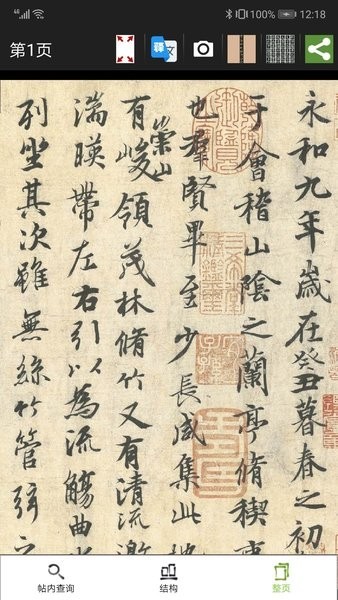 100% 12:18
第1页
译 文
永和九年歲在癸丑暮春之初
于會稽山陰之蘭亭脩稧事
也羣賢畢至少長咸集此地
有崇山峻領茂林脩竹又有清流激
湍暎帶左右引以為流觴曲水
列坐其次雖無絲竹管弦之
帖内查询 结构 整页